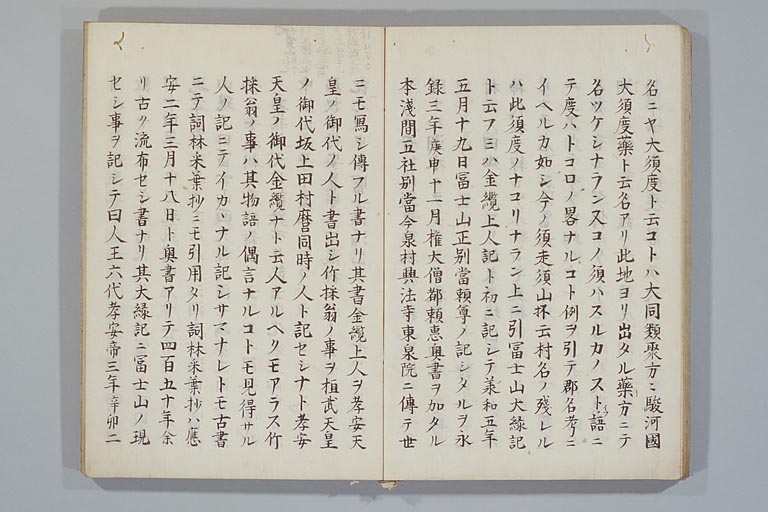 名ニヤ大須度ト云コトハ大同類聚方ニ駿河國
大須度藥ト云名アリ此地ヨリ出タル藥方ニテ
名ツケシナラン又コノ須ハスルカノストイフ語ニ
テ度ハトコロノ畧ナルコト例ヲ引テ郡名考ニ
イヘルカ如シ今ノ須走須山抔云村名ノ殘レル
ハ此須度ノナコリナラン上ニ引冨士山大縁記
ト云フミハ金纜上人記ト初ニ記シテ美和五年
五月十九日冨士山正別當頼尊ノ記シタルヲ永
録三年庚申十一月權大僧都頼惠奥書ヲ加タル
本淺間五社別當今泉村興法寺東泉院ニ傳テ世
ニモ寫シ傳フル書ナリ其書金纜上人ヲ孝安天
皇ノ御代ノ人ト書出シ竹採翁ノ事ヲ桓武天皇
ノ御代坂上田村麿同時ノ人ト記セシナト孝安
天皇ノ御代金纜ナト云人アルヘクモアラス竹
採翁ノ事ハ其物語ノ偶言ナルコトモ見得サル
人ノ記ニテイカヽナル記シサマナレトモ古書
ニテ詞林采葉抄ニモ引用タリ詞林采葉抄ハ應
安二年三月十八日ト奥書アリテ四百五十年余
リ古ク流布セシ書ナリ其大縁記ニ冨士山ノ現
セシ事ヲ記シテ曰人王六代孝安帝三年辛卯二